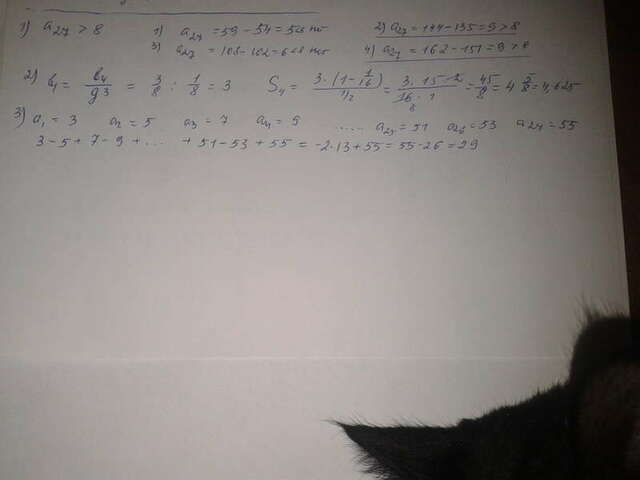 1) a₂₇ > 8    1) a₂₇ = 59 - 54 = 5    2) a₂₇ = 144 - 135 = 9 > 8
3) a₂₇ = 108 - 102 = 6    4) a₂₇ = 162 - 151 = 9 > 8
2) b₁ = b₄/g³ = 3/8 : 1/8 = 3    S₄ = 3·(1-1/16)/1/2 = 3·15·2/16·1 = 45/8 = 4 5/8 = 4,625
3) a₁ = 3    a₂ = 5    a₃ = 7    a₄ = 9    ..... a₂₅ = 51    a₂₆ = 53    a₂₇ = 55
3 - 5 + 7 - 9 + ... + 51 - 53 + 55 = -2·13 + 55 = 55 - 26 = 29